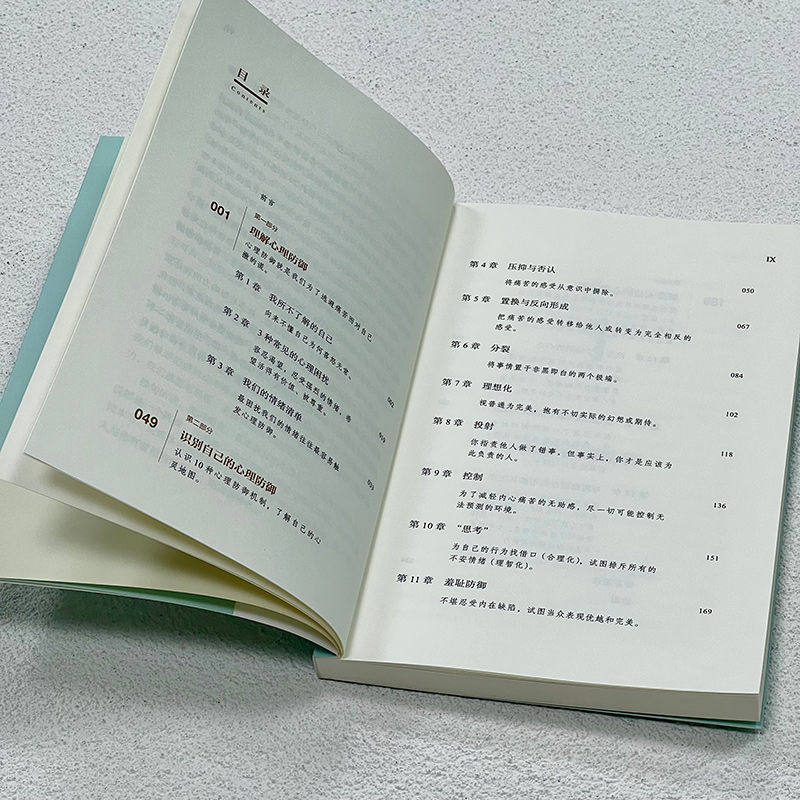 目 录
Contents
前言
001
第一部分
理解心理防御
心理防御就是我们为了逃避痛苦而对自己
撒的谎。
第 1 章 我所不了解的自己
向来不懂自己为何喜怒无常。
002
第 2 章 3 种常见的心理困扰
容忍渴望，忍受强烈的情绪，希
望活得有价值、被尊重。
第 3 章 我们的情绪清单
最困扰我们的情绪往往最容易触
发心理防御。
049
第二部分
识别自己的心理防御
认识 10 种心理防御机制，了解自己的心
灵地图。
IX
第 4 章 压抑与否认
将痛苦的感受从意识中摒除。
050
第 5 章 置换与反向形成
把痛苦的感受转移给他人或转变为完全相反的
感受。
067
第 6 章 分裂
将事情置于非黑即白的两个极端。
084
第 7 章 理想化
视普通为完美，抱有不切实际的幻想或期待。
102
第 8 章 投射
你指责他人做了错事，但事实上，你才是应该为
此负责的人。
118
第 9 章 控制
为了减轻内心痛苦的无助感，尽一切可能控制无
法预测的环境。
136
第 10 章 “思考”
为自己的行为找借口（合理化），试图排斥所有的
不安情绪（理智化）。
151
第 11 章 羞耻防御
不堪忍受内在缺陷，试图当众表现优越和完美。
169